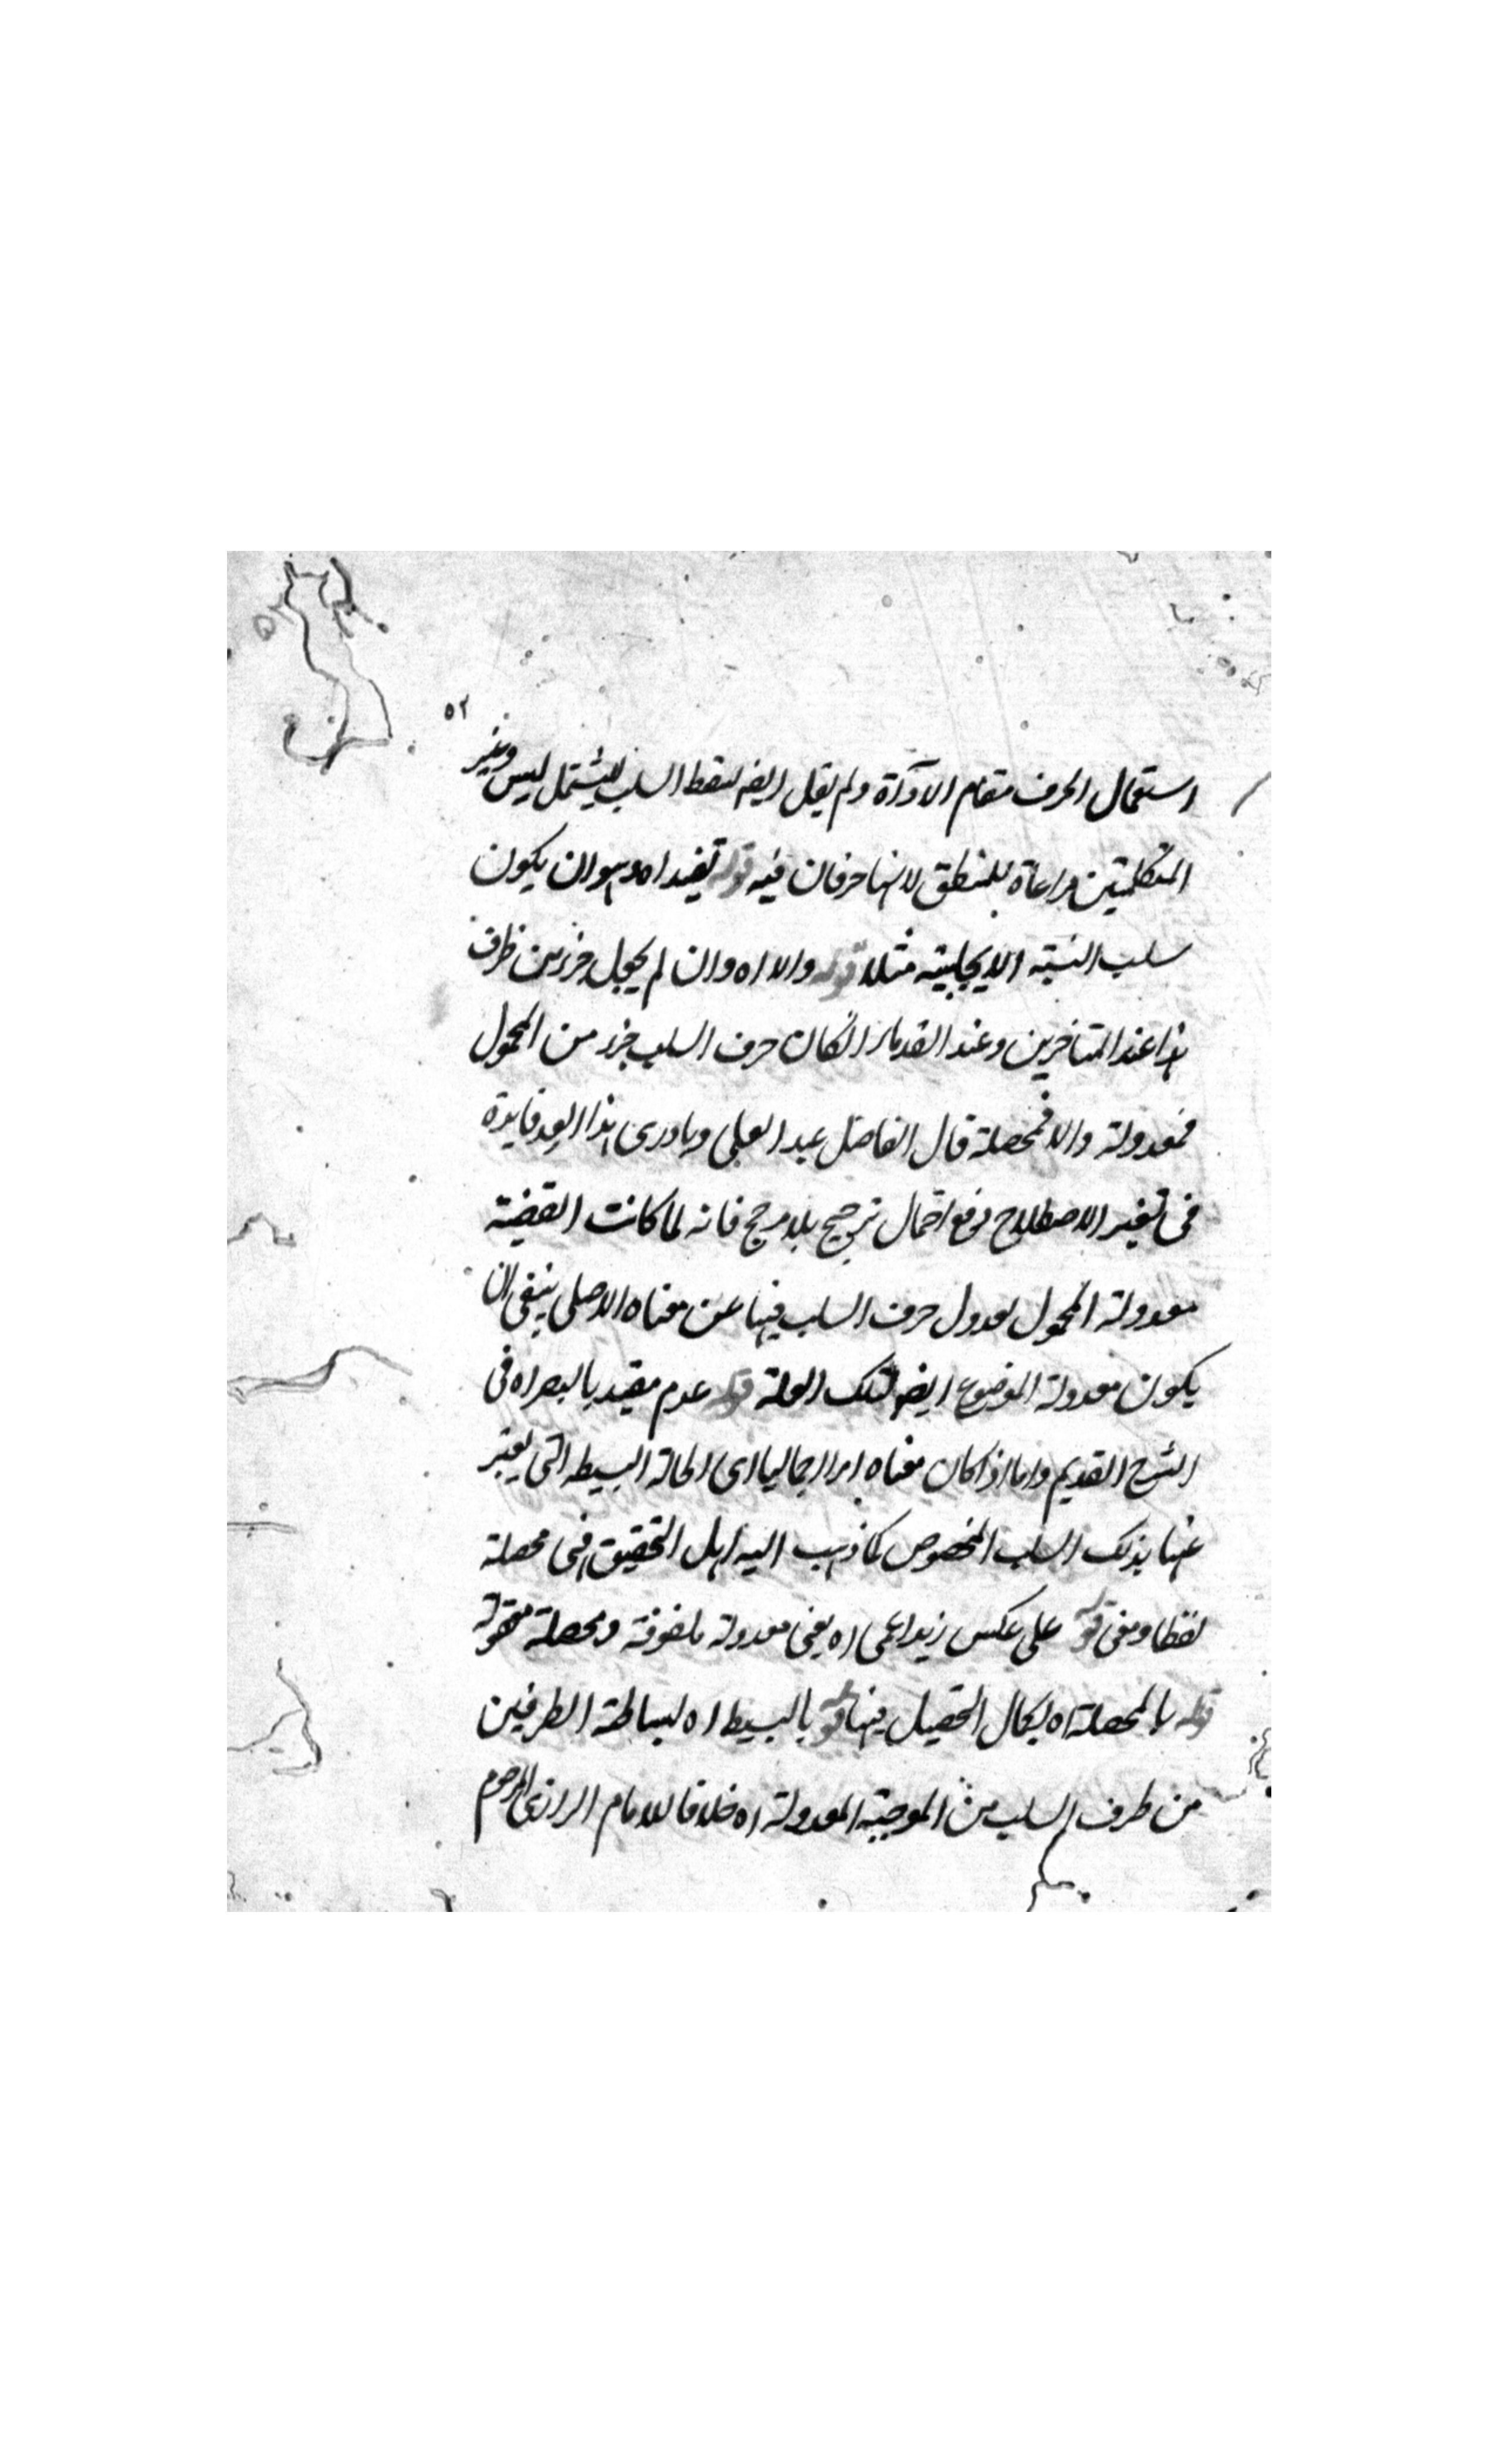 ٥٢
استعمال الحرف مقام الاداة ولم يقل ايضہ لفظ السلب ليشتمل ليس وغير
المتكلميتين مراعاة للمنطق لانہما حرفان فيہ قولہ تفيد اہ وہو ان يكون
سلب النسبة الايجابية مثلا قولہ والا اہ وان لم يجعل جزء من طرف
ہذا عند المتاخرين وعند القدماء ان كان حرف السلب جزء من المحمول
فمعدولة والا فمحصلة قال الفاضل عبد العلي وما درى ہذا العبد فايدة
فى تغير الاصطلاح مع احتمال ترجيح بلا مرجح فانہ لما كانت القضية
معدولة المحمول لعدول حرف السلب فيہا عن معناه الاصلى ينبغى ان
يكون معدولة الموضوع ايضہ لتلك العلة قولہ عدم مقيد بالبصر اہ فى
الشرح القديم واما اذا كان معناه امرا اجماليا اى الحالة البسيطة التى يعبر
عنہا بذلك السلب المخصوص كما ذہب اليہ اہل التحقيق فہى محصلة
لفظا ومعنى قولہ على عكس زيد اعمى اہ يعنى معدولة ملفوظة ومحصلة معقولة
قولہ بالمحصلة اہ لكمال التحصيل فيہا قولہ بالبسيط اہ لبساطة الطرفين
من طرف السلب من الموجبة المعدولة اہ خلافا للامام الرازى المرحوم